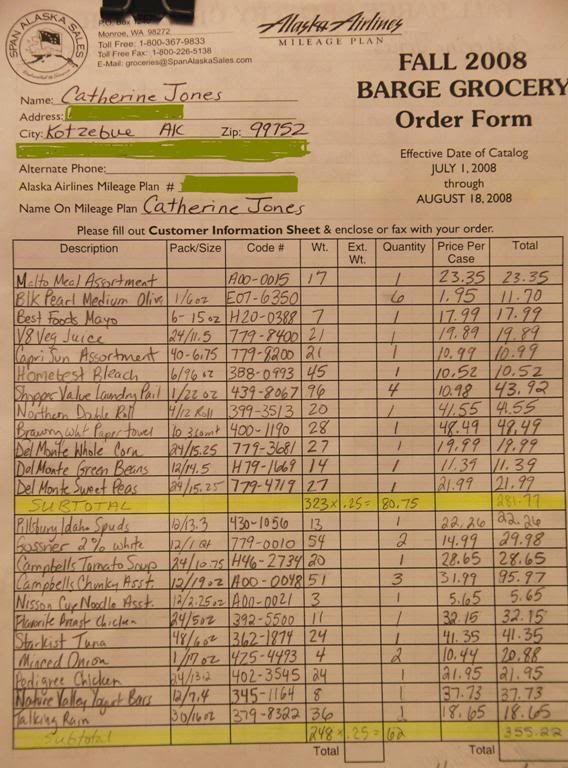 SPAN ALASKA SALES
P.O. Box
Monroe, WA 98272
Toll Free: 1-800-367-9833
Toll Free Fax: 1-800-226-5138
E-Mail: groceries@SpanAlaskaSales.com
Alaska Airlines
MILEAGE PLAN
FALL 2008
BARGE GROCERY
Order Form
Effective Date of Catalog
JULY 1, 2008
through
AUGUST 18, 2008
Name: Catherine Jones
Address:
City: Kotzebue AK Zip: 99752
Alternate Phone:
Alaska Airlines Mileage Plan #
Name On Mileage Plan Catherine Jones
Please fill out Customer Information Sheet & enclose or fax with your order.
Description Pack/Size Code # Wt. Ext. Wt. Quantity Price Per Case Total
Malto Meal Assortment A00-0015 17 1 23.35 23.35
Blk Pearl Medium Olive 1/6oz E07-6350 6 1.95 11.70
Best Foods Mayo 6-15oz H20-0388 7 1 17.99 17.99
V8 Veg Juice 24/11.5 779-8400 21 1 19.89 19.89
Capri Sun Assortment 40-6.75 779-9200 21 1 10.99 10.99
Homebest Bleach 6/96oz 388-0993 45 1 10.52 10.52
Shoppers Value Laundry Pail 1/22oz 439-8067 96 4 10.98 43.92
Northern Double Roll 4/12 Roll 399-3513 20 1 41.55 41.55
Brawny wht Paper towel 400-1190 28 1 48.49 48.49
Del Monte Whole Corn 24/15.25 779-3681 27 1 19.99 19.99
Del Monte Green Beans 12/14.5 H79-1669 14 1 11.39 11.39
Del Monte Sweet Peas 24/15.25 779-4719 27 1 21.99 21.99
SUBTOTAL 323 x .25= 80.75 281.77
Pillsbury Idaho Spuds 12/13.3 430-1056 13 1 22.26 22.26
Gossner 2% White 12/1 Qt 779-0010 54 2 14.99 29.98
Campbells Tomato Soup 24/10.75 H46-2734 20 1 28.65 28.65
Campbells Chunky Asst. 12/19oz A00-0048 51 3 31.99 95.97
Nisson Cup Noodle Asst. 12/2.25oz A00-0021 3 1 5.65 5.65
Flavorite Breast Chicken 24/5oz 392-5500 11 1 32.15 32.15
Starkist Tuna 48/6oz 362-1874 24 1 41.35 41.35
Minced Onion 1/17oz 475-4493 4 2 10.44 20.88
Pedigree Chicken 24/13.2 402-3545 24 1 21.95 21.95
Nature Valley Yogurt Bars 12/7.4 345-1164 8 1 37.73 37.73
Talking Rain 30/16oz 379-8322 36 1 18.65 18.65
Subtotal 248 x .25= 62 355.22
Total Total